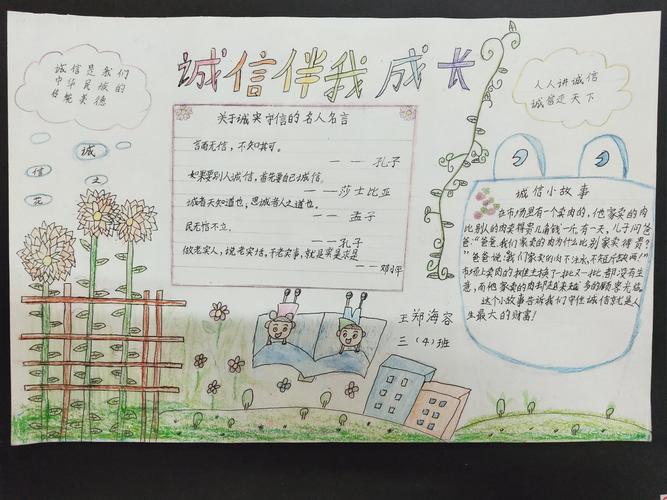 诚信伴我成长
诚信是我们
中华民族的
传统美德
人人讲诚信
诚信走天下
诚
信
之
花
关于诚实守信的名人名言
言而无信，不知其可。
——孔子
如果要别人诚信，首先要自己诚信。
——莎士比亚
诚者天知道也，思诚者人之道也。
——孟子
民无信不立。
——孔子
做老实人，说老实话，干老实事，就是实事求是
——邓小平
王郑海容
三（4）班
诚信小故事
在市场里有一个卖肉的，他家卖的肉
比别人的肉卖得贵几角钱一斤，有一天，儿子问爸
爸："爸爸，我们家卖的肉为什么比别家卖得贵？
"爸爸说："我们家卖的肉不注水，不短斤缺两！"
市场上卖的摊主换了一批又一批都没有生
意，而他家卖的肉却越来越多的顾客光临
这个小故事告诉我们守住诚信京就是人
生最大的财富！